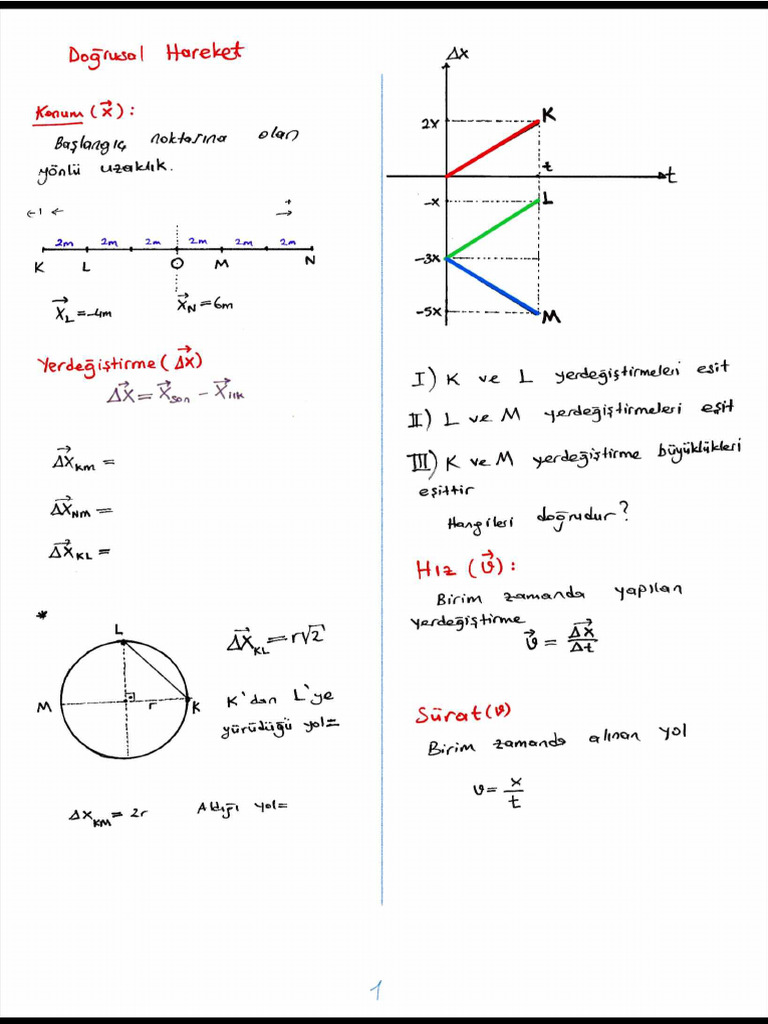 Doğrusal Hareket
Konum (x⃗):
Başlangıç noktasına olan
yönlü uzaklık.
(-) ← + →
2m 2m 2m 2m 2m 2m
K L O M N
x⃗_L = -4m x⃗_N = 6m
Yerdeğiştirme (Δx⃗)
Δx⃗ = x⃗_son - x⃗_ilk
Δx⃗_KM =
Δx⃗_NM =
Δx⃗_KL =
*
L
M r K
Δx⃗_KL = r√2
K'dan L'ye
yürüdüğü yol=
Δx_KM = 2r Aldığı yol=
Δx
2x K
t t
-x L
-3x
-5x M
I) K ve L yerdeğiştirmeleri eşit
II) L ve M yerdeğiştirmeleri eşit
III) K ve M yerdeğiştirme büyüklükleri
eşittir
Hangileri doğrudur?
Hız (ϑ⃗):
Birim zamanda yapılan
yerdeğiştirme
ϑ⃗ = Δx⃗/Δt
Sürat (ϑ)
Birim zamanda alınan yol
ϑ = x/t
1